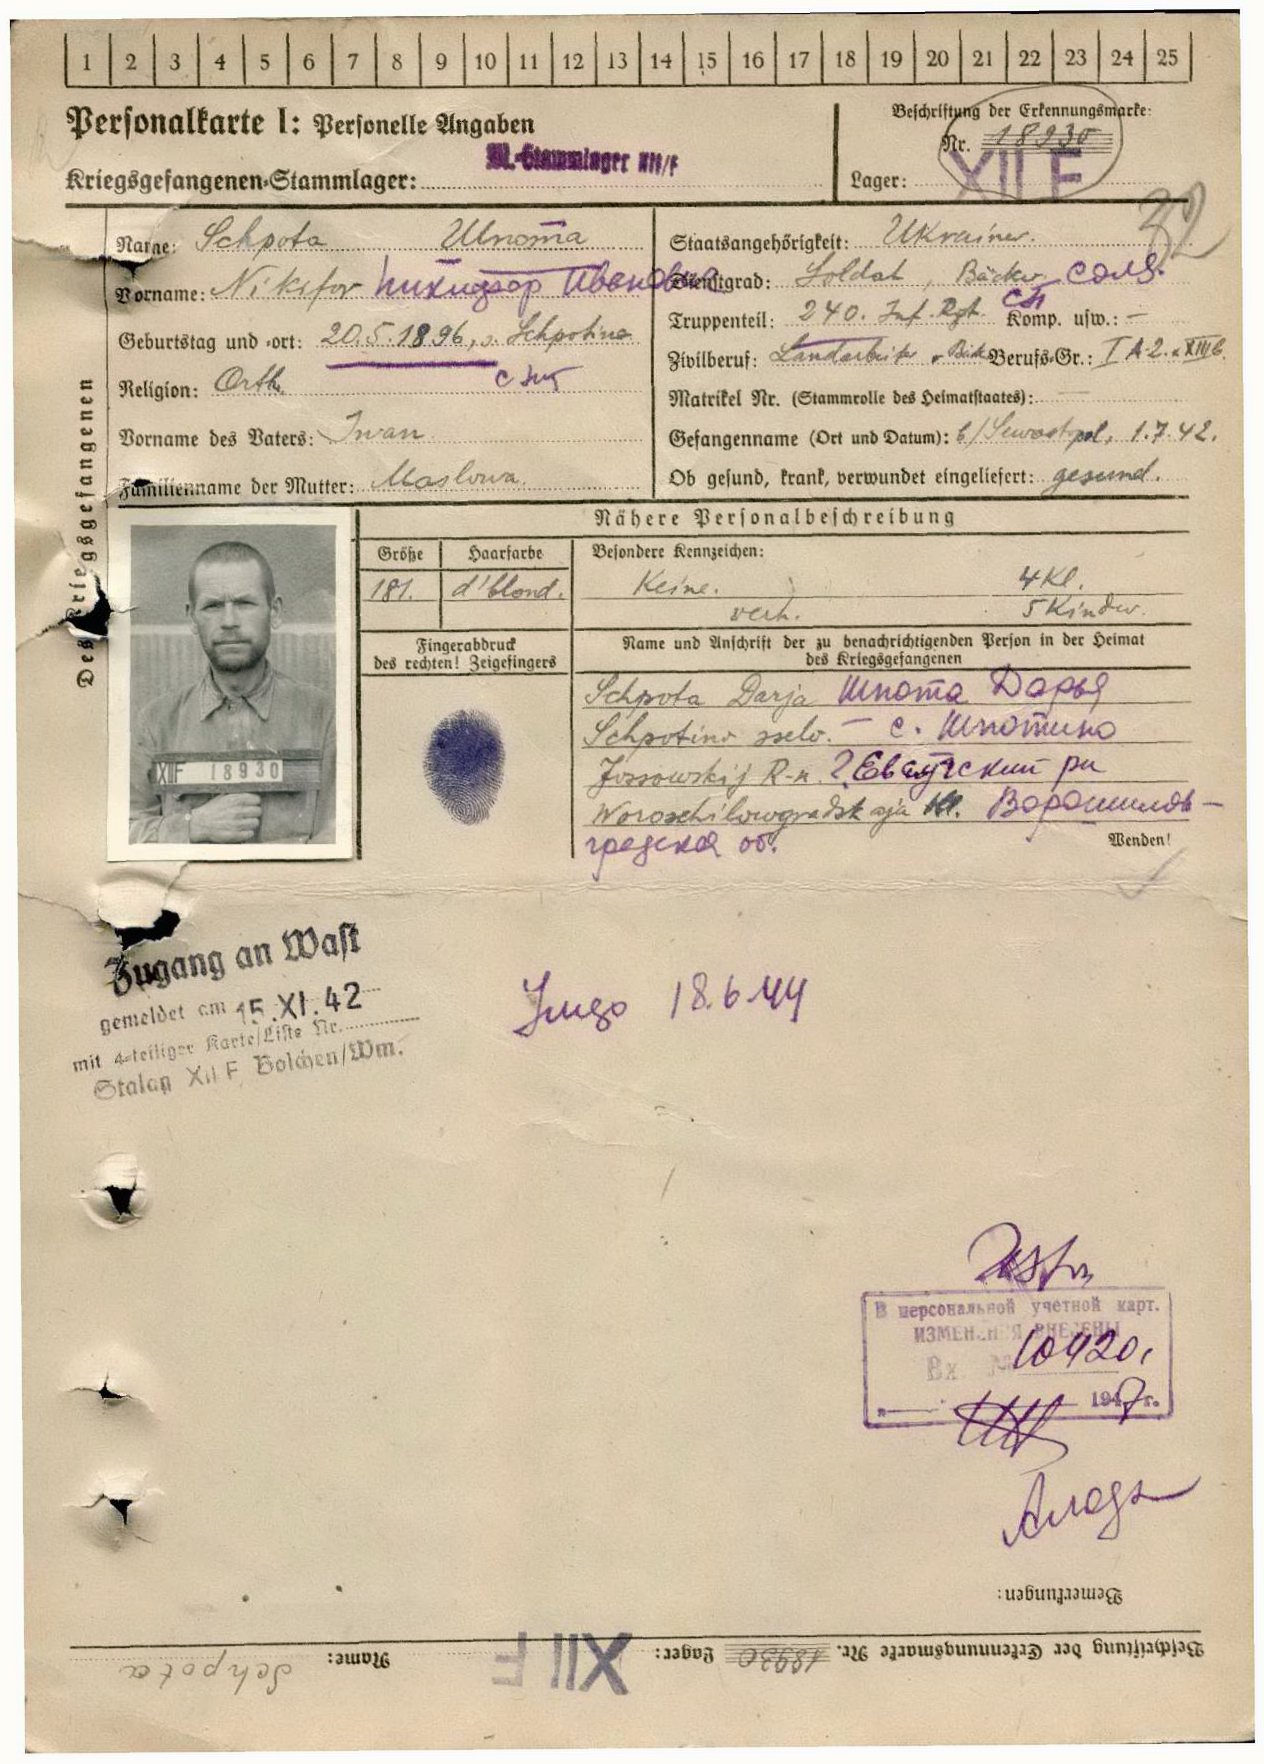 1 2 3 4 5 6 7 8 9 10 11 12 13 14 15 16 17 18 19 20 21 22 23 24 25
Personalkarte I: Personelle Angaben
Beschriftung der Erkennungsmarke:
Nr. 18930
M.-Stammlager XII/F
Kriegsgefangenen-Stammlager:
Lager: XII F
32
Des Kriegsgefangenen
Name: Schpota Шпота
Vorname: Nikifor Никифор Иванович
Geburtstag und -ort: 20.5.1896, s. Schpotino
Religion: Orth.
Vorname des Vaters: Iwan
Familienname der Mutter: Maslowa.
Staatsangehörigkeit: Ukrainer.
Dienstgrad: Soldat, Bäcker солд.
Truppenteil: 240. Inf. Rgt. сп Komp. usw.: —
Zivilberuf: Landarbeiter Berufs-Gr.: I A 2. XIII b
Matrikel Nr. (Stammrolle des Heimatstaates): —
Gefangenname (Ort und Datum): b/Sewastopol, 1.7.42.
Ob gesund, krank, verwundet eingeliefert: gesund.
Nähere Personalbeschreibung
Größe
Haarfarbe
Besondere Kennzeichen:
181.
d'blond.
Keine. 4 Kl.
verh. 5 Kinder.
Fingerabdruck
des rechten! Zeigefingers
Name und Anschrift der zu benachrichtigenden Person in der Heimat
des Kriegsgefangenen
Schpota Darja Шпота Дарья
Schpotino sselo. — с. Шпотино
Jossowskij R-n. ? рн
Woroschilowgradskaja Ворошилов-
градская об.
Wenden!
XII F 18930
Zugang an Wast
gemeldet am 15. XI. 42
mit 4-teiliger Karte/Liste Nr.
Stalag XII F Bolchen/Wm.
18.6.44
В персональной учетной карт.
ИЗМЕНЕНИЯ ВНЕСЕНЫ
Вх № 10420.
1947 г.
Bemerkungen:
Beschriftung der Erkennungsmarke Nr. 18930 Lager: XII F Name: Schpota